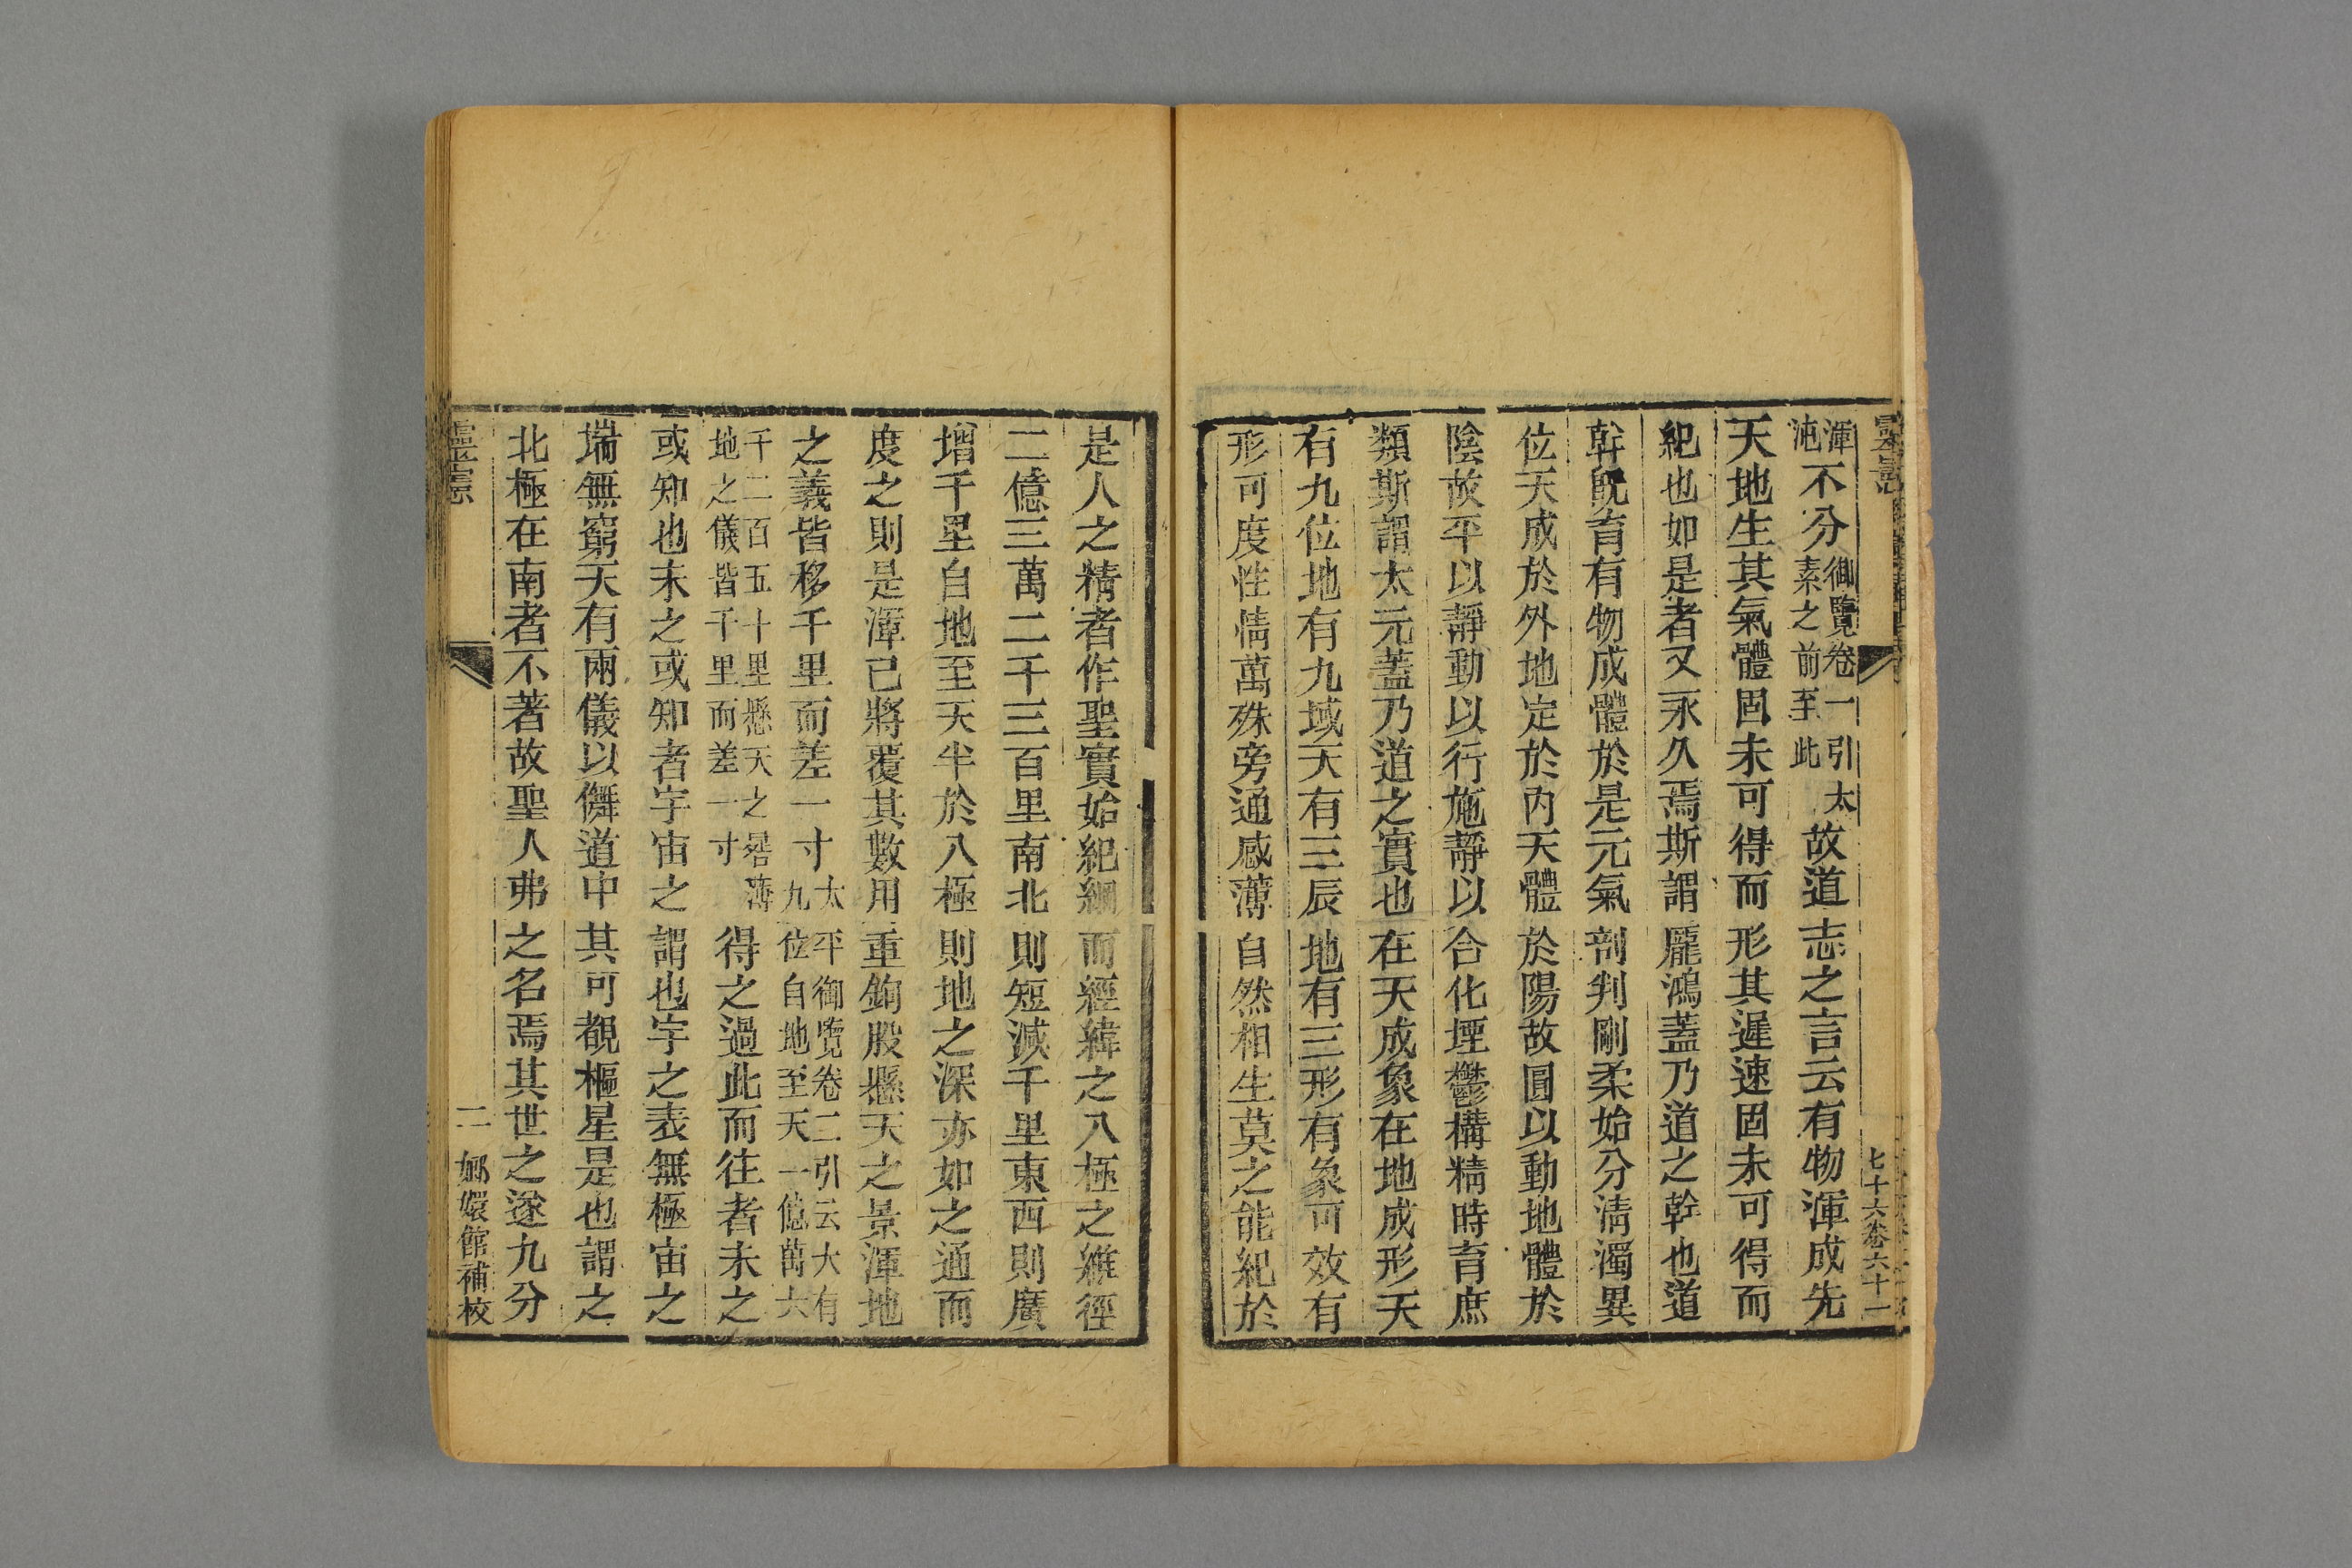 靈憲
七十六卷六十一
渾沌不分御覽卷一引太素之前至此故道志之言云有物渾成先
天地生其氣體固未可得而形其遲速固未可得而
紀也如是者又永久焉斯謂龎鴻蓋乃道之幹也道
幹旣育有物成體於是元氣剖判剛柔始分淸濁異
位天成於外地定於內天體於陽故圓以動地體於
陰故平以靜動以行施靜以合化堙鬱構精時育庶
類斯謂太元蓋乃道之實也在天成象在地成形天
有九位地有九域天有三辰地有三形有象可效有
形可度性情萬殊旁通感薄自然相生莫之能紀於
是人之精者作聖實始紀綱而經緯之八極之維徑
二億三萬二千三百里南北則短減千里東西則廣
增千里自地至天半於八極則地之深亦如之通而
度之則是渾已將覆其數用重鉤股懸天之景渾地
之義皆移千里而差一寸太平御覽卷二引云大有九位自地至天一億萬六
千二百五十里懸天之晷薄地之儀皆千里而差一寸得之過此而往者未之
或知也未之或知者宇宙之謂也宇之表無極宙之
端無窮天有兩儀以儛道中其可覩樞星是也謂之
北極在南者不著故聖人弗之名焉其世之遂九分
靈憲
二
嫏嬛館補校